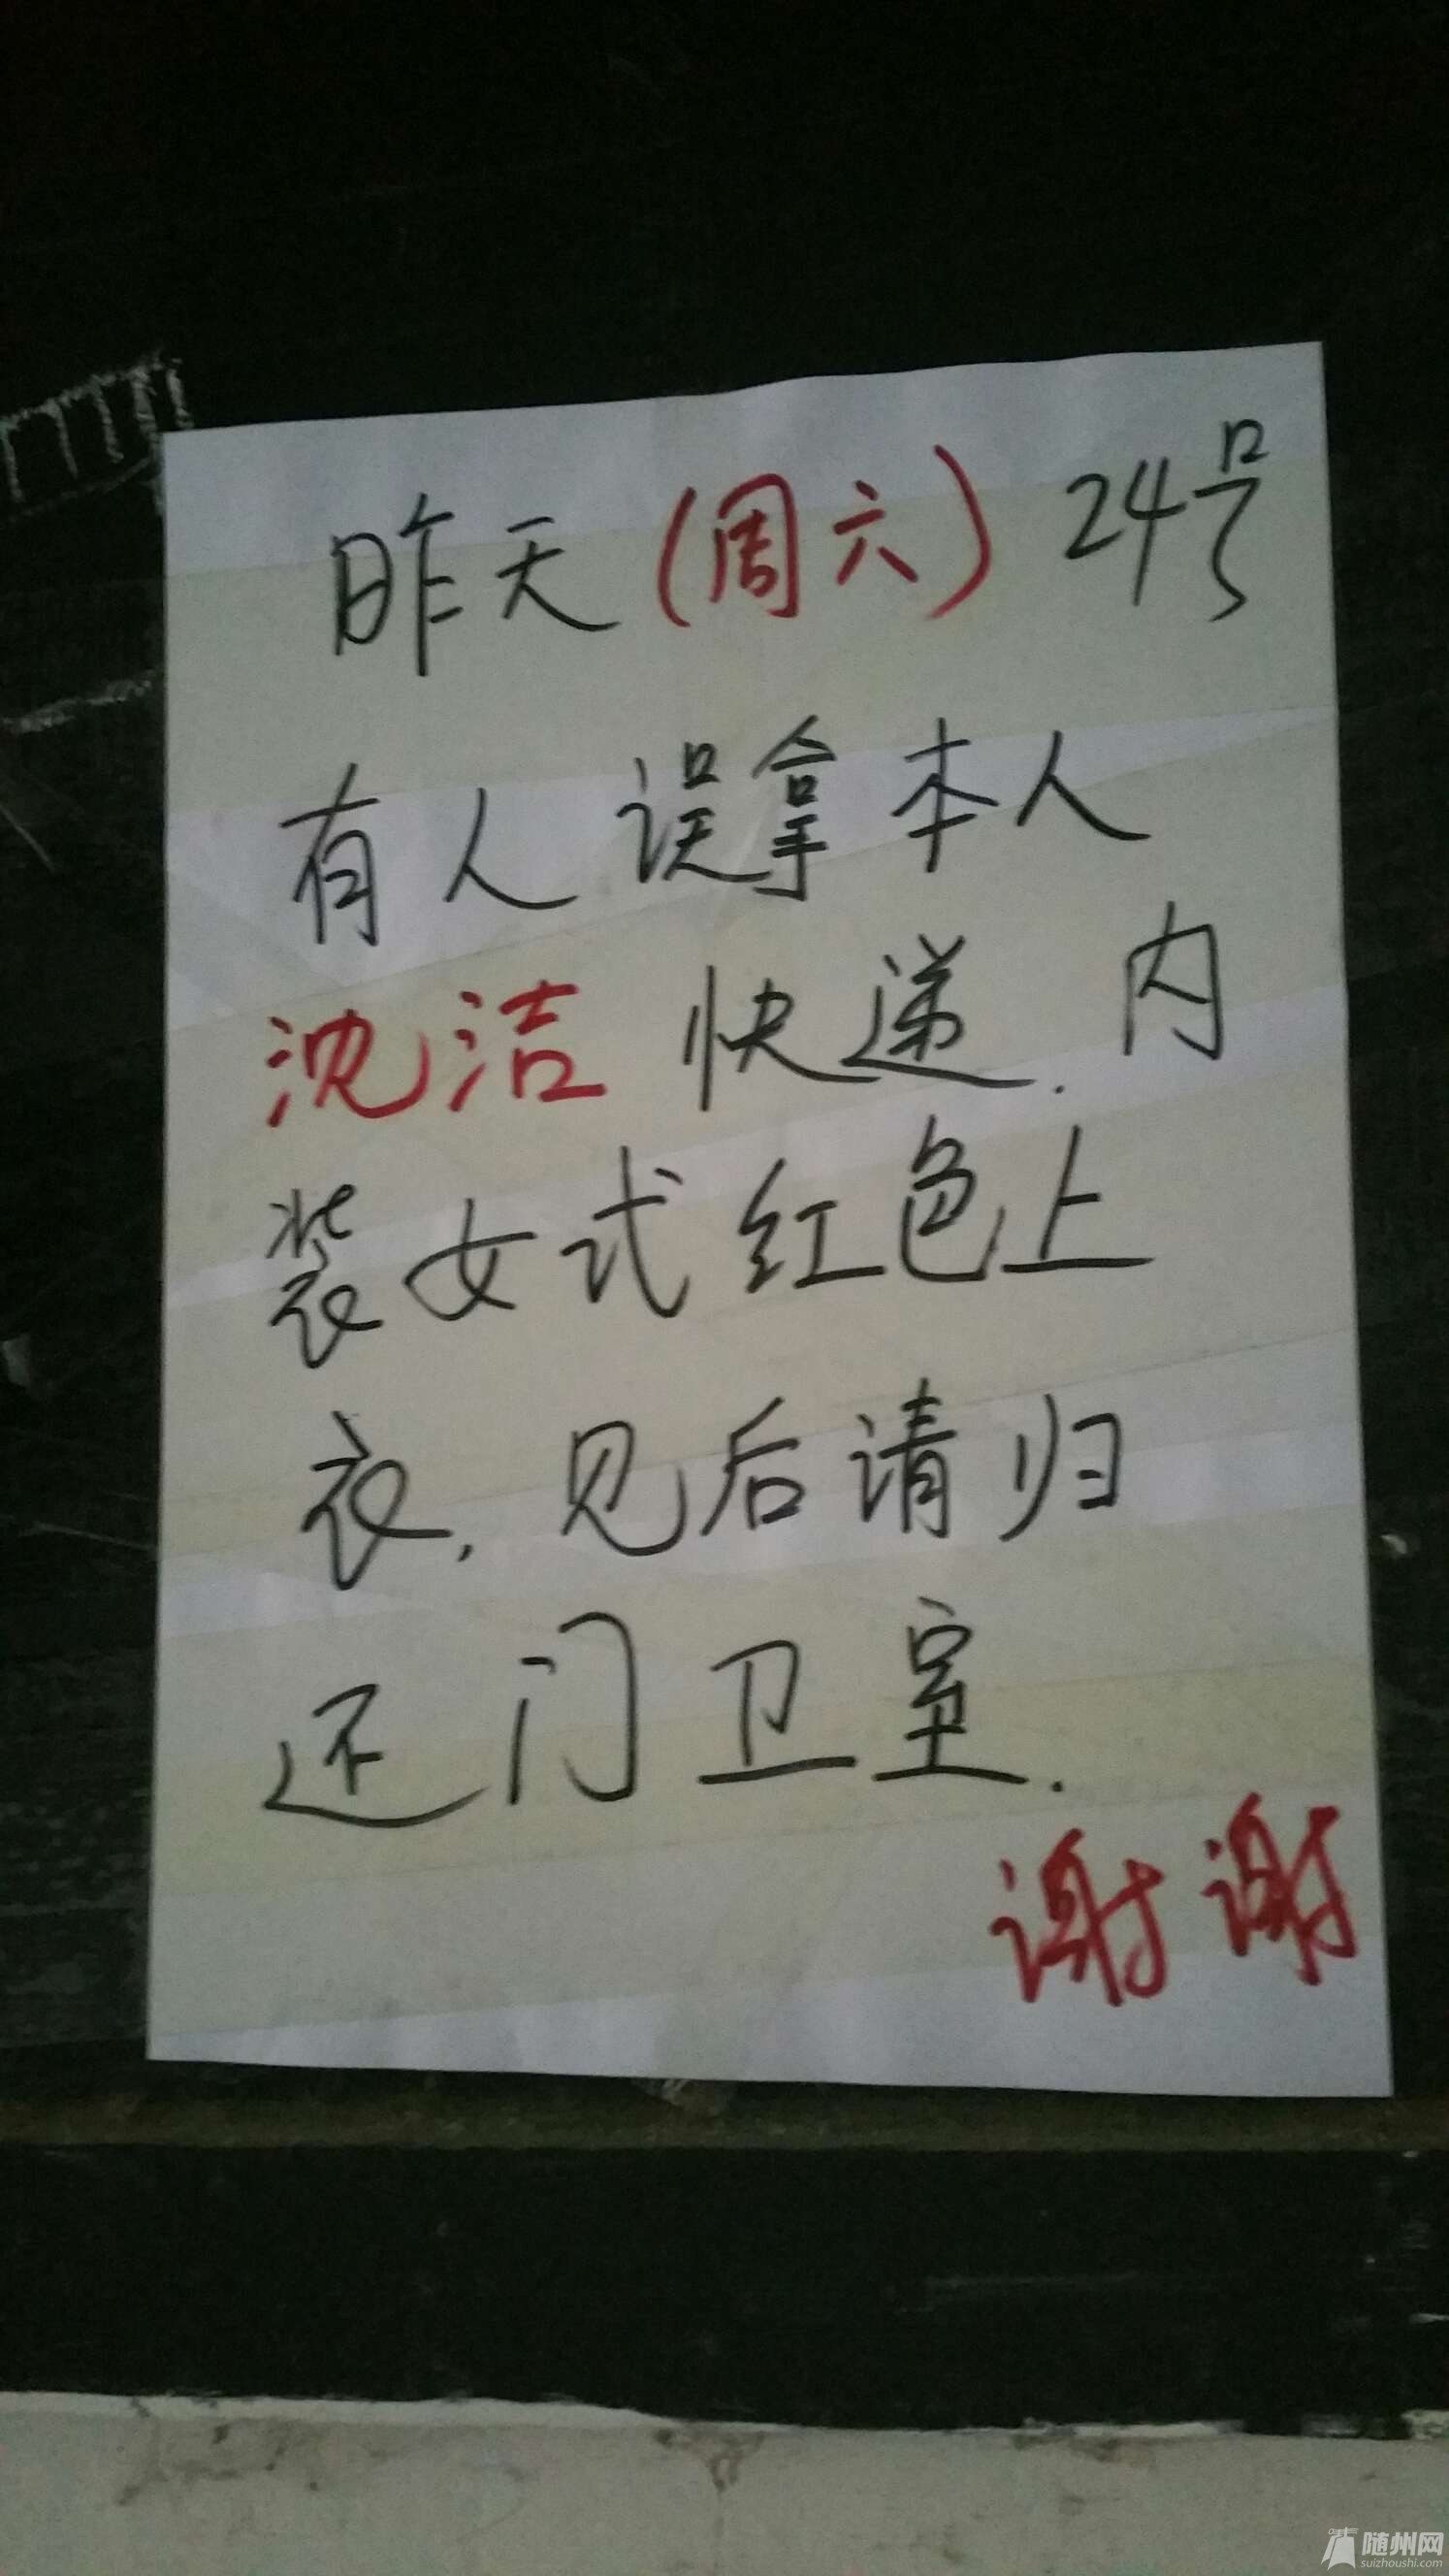 昨天(周六)24号
有人误拿本人
沈洁快递.内
装女式红色上
衣,见后请归
还门卫室.
谢谢
随州网
suizhoushi.com